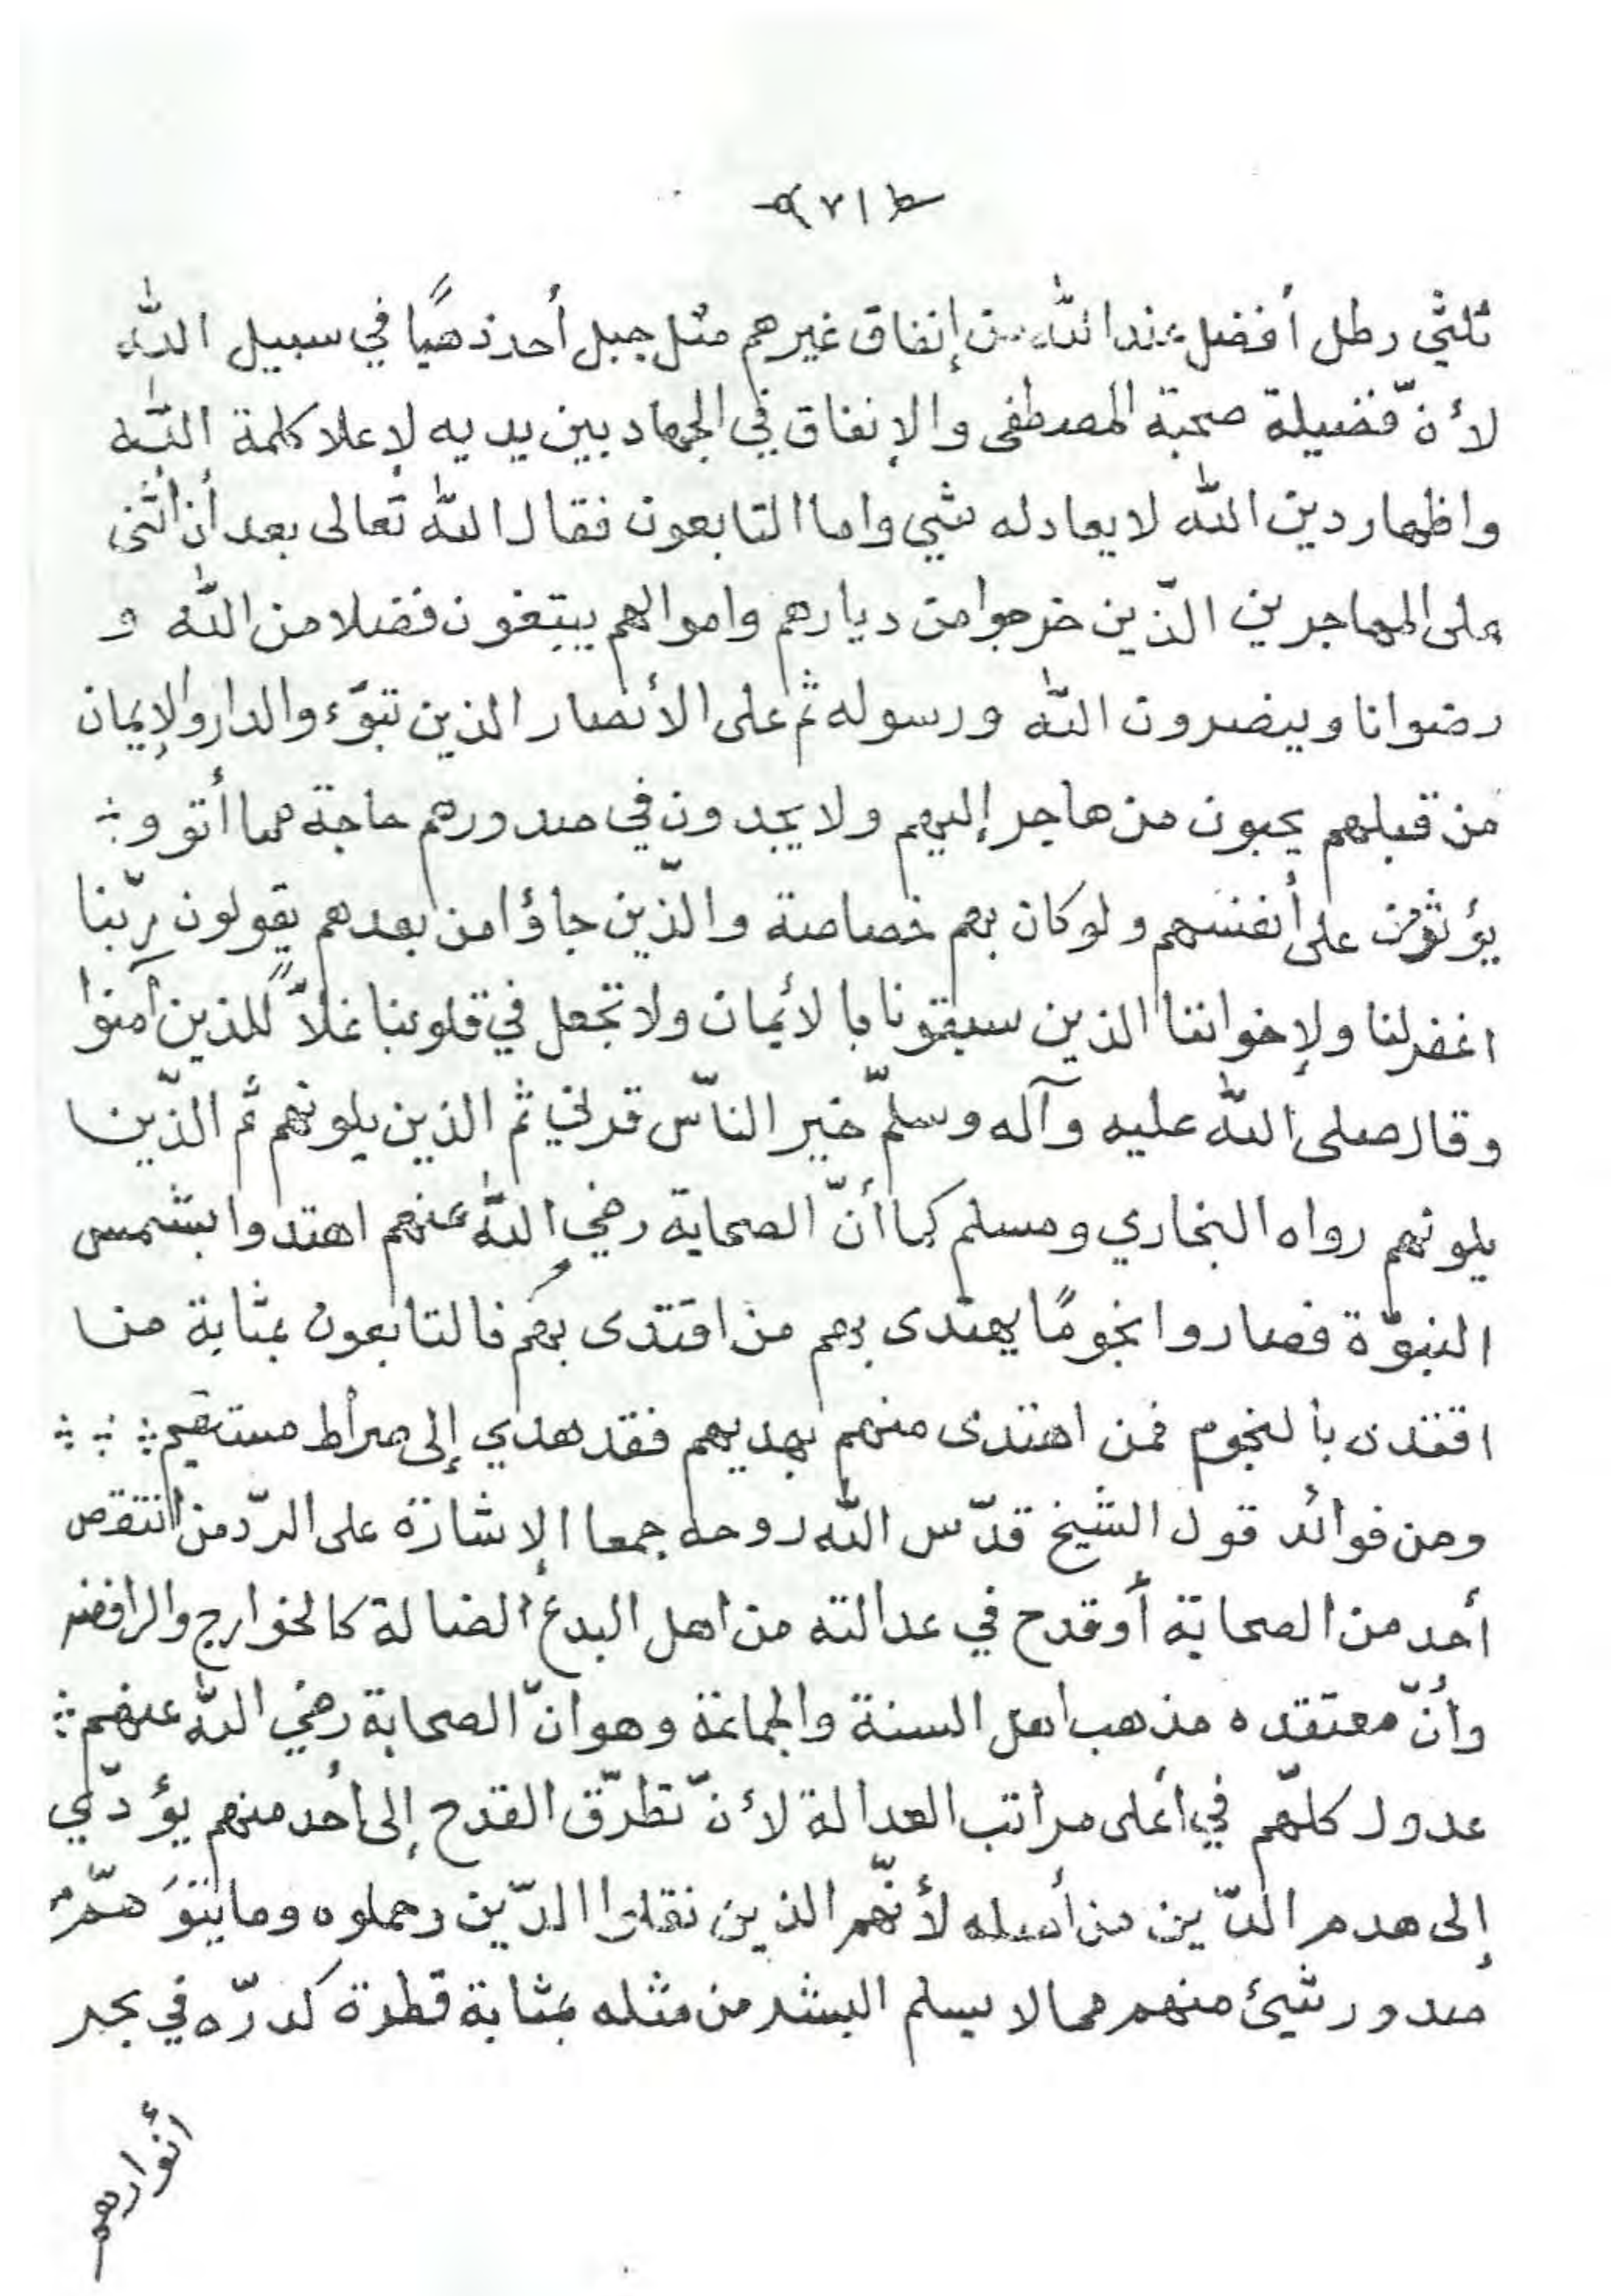 ٧١
ثلثي رطل أفضل عند الله من إنفاق غيرهم مثل جبل أحد ذهبًا في سبيل الله
لأنّ فضيلة صحبة المصطفى والإنفاق في الجهاد بين يديه لإعلا كلمة الله
واظهار دين الله لا يعادله شيي واما التابعون فقال الله تعالى بعد أن أثنى
على المهاجرين الّذين خرجوا من ديارهم واموالهم يبتغون فضلا من الله و
رضوانا وينصرون الله ورسوله ثم على الأنصار الذين تبوّءوالدار والإيمان
من قبلهم يحبون من هاجر إليهم ولا يجدون في صدورهم حاجة مما أتو و
يؤثرون على أنفسهم ولو كان بهم خصاصة والّذين جاؤا من بعدهم يقولون ربّنا
اغفر لنا ولإخواننا الذين سبقونا بالأيمان ولا تجعل في قلوبنا غلاًّ للذين آمنوا
وقال صلى الله عليه وآله وسلّم خير النّاس قرني ثم الذين يلونهم ثم الذّين
يلونهم رواه البخاري ومسلم كما أنّ الصحابة رضي الله عنهم اهتدوا بشمس
النبوّة فصاروا نجومًا يهتدى بهم من اقتدى بهم فالتابعون بمثابة من
اقتدى بالنجوم فمن اهتدى منهم بهديهم فقد هدي إلى صراط مستقيم
ومن فوائد قول الشيخ قدّس الله روحه جمعا الإشارة على الردّ من انتقص
أحد من الصحابة أو قدح في عدالته من اهل البدع الضالة كالخوارج والرافضه
وأنّ معتقده مذهب اهل السنة والجماعة وهو انّ الصحابة رضي الله عنهم
عدول كلّهم في أعلى مراتب العدالة لأنّ تطرّق القدح إلى أحد منهم يؤدّي
إلى هدم الدّين من أصله لأنّهم الذين نقلوا الدّين وحملوه وما يتوَهّمُ
صدور شيئ منهم مما لا يسلم البشر من مثله بمثابة قطرة كدرّه في بحر
أنوارهم